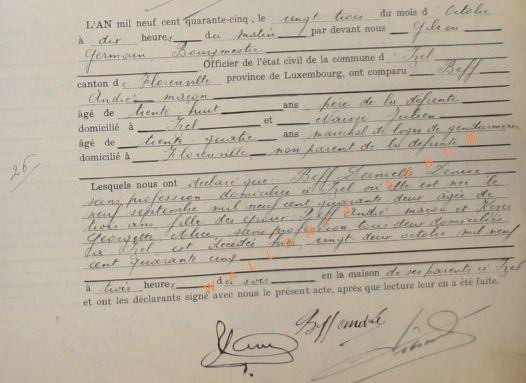 L'AN mil neuf cent quarante-cinq, le vingt trois du mois d'Octobre
à dix heures du matin par devant nous Gilson
Germain, Bourgmestre
Officier de l'état civil de la commune d'Izel
canton de Florenville province de Luxembourg, ont comparu Beff
André maçon
âgé de trente huit ans père de la défunte
domicilié à Izel et Julien
âgé de trente-quatre ans maréchal de logis de gendarmerie
domicilié à Florenville non parent de la défunte
26
Lesquels nous ont déclaré que Beff Danielle Denise
sans profession domiciliée à Izel où elle est née le
neuf septembre mil neuf cent quarante deux âgée de
trois ans fille des époux Beff André maçon et
Georgette sans profession tous deux domiciliés
à Izel est décédée hier, vingt-deux octobre mil neuf
cent quarante cinq
à trois heures du soir en la maison de ses parents à Izel
et ont les déclarants signé avec nous le présent acte, après que lecture leur en a été faite.
Beff André